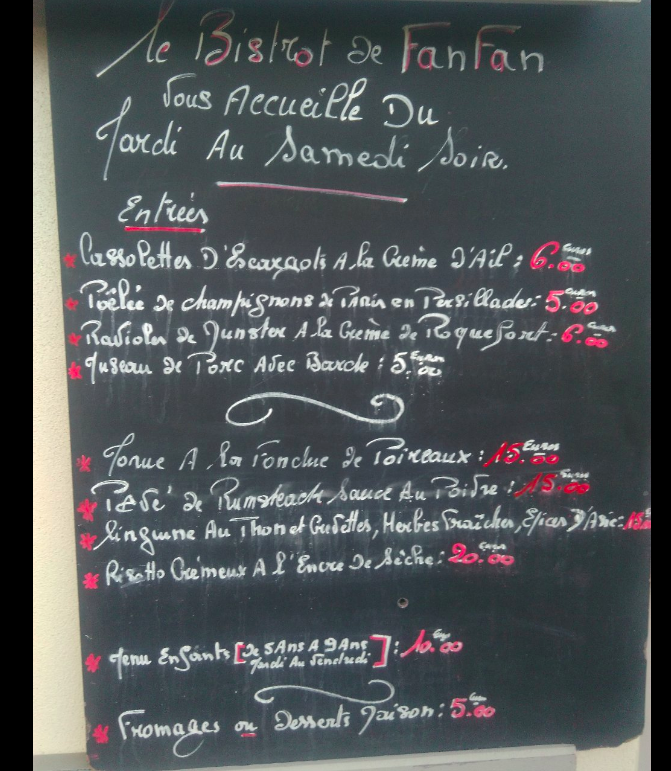 Le Bistrot de FanFan
Vous Accueille Du
Mardi Au Samedi Soir.
Entrées
* Cassolettes D'Escargots A la Crème D'Ail : 6.00 Euros
* Poêlée de champignons de Paris en Persillades : 5.00 Euros
* Ravioles de Munster A la Crème de Roquefort : 6.00 Euros
* Museau de Porc Avec Barde : 5.00 Euros
* Morue A la Fondue de Poireaux : 15.00 Euros
* Pavé de Rumsteack Sauce Au Poivre : 15.00 Euros
* Linguine Au Thon et Crevettes, Herbes Fraîches, Epices D'Asie :
* Risotto Crémeux A l'Encre De Sèche : 20.00 Euros
* Menu Enfants [De 5 Ans A 9 Ans
Mardi Au Vendredi] : 10.00
* Fromages ou Desserts Maison : 5.00